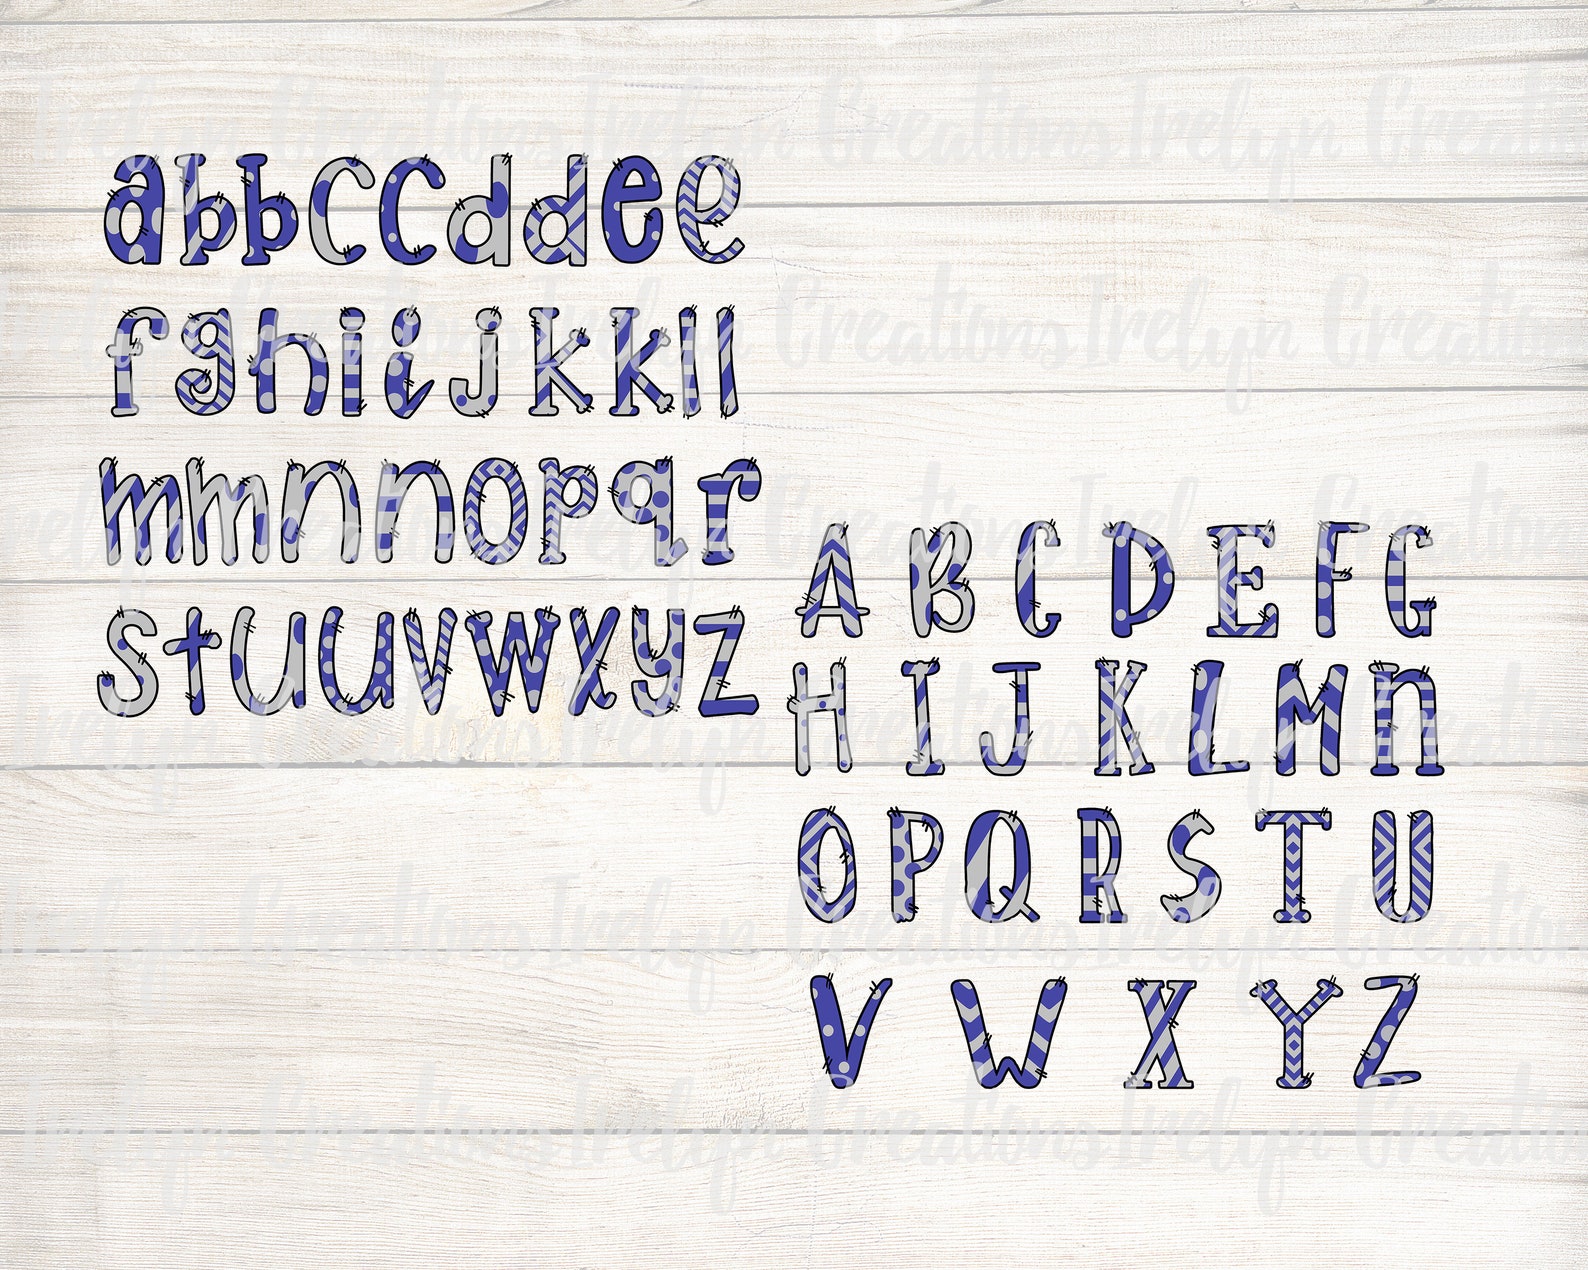 abbccddee
fghiijkkll
mmnnopqr
stuuvwxyz
ABCDEFG
HIJKLMn
OPQRSTU
VWXYZ
Irelyn Creations Irelyn Creations Irelyn Creations